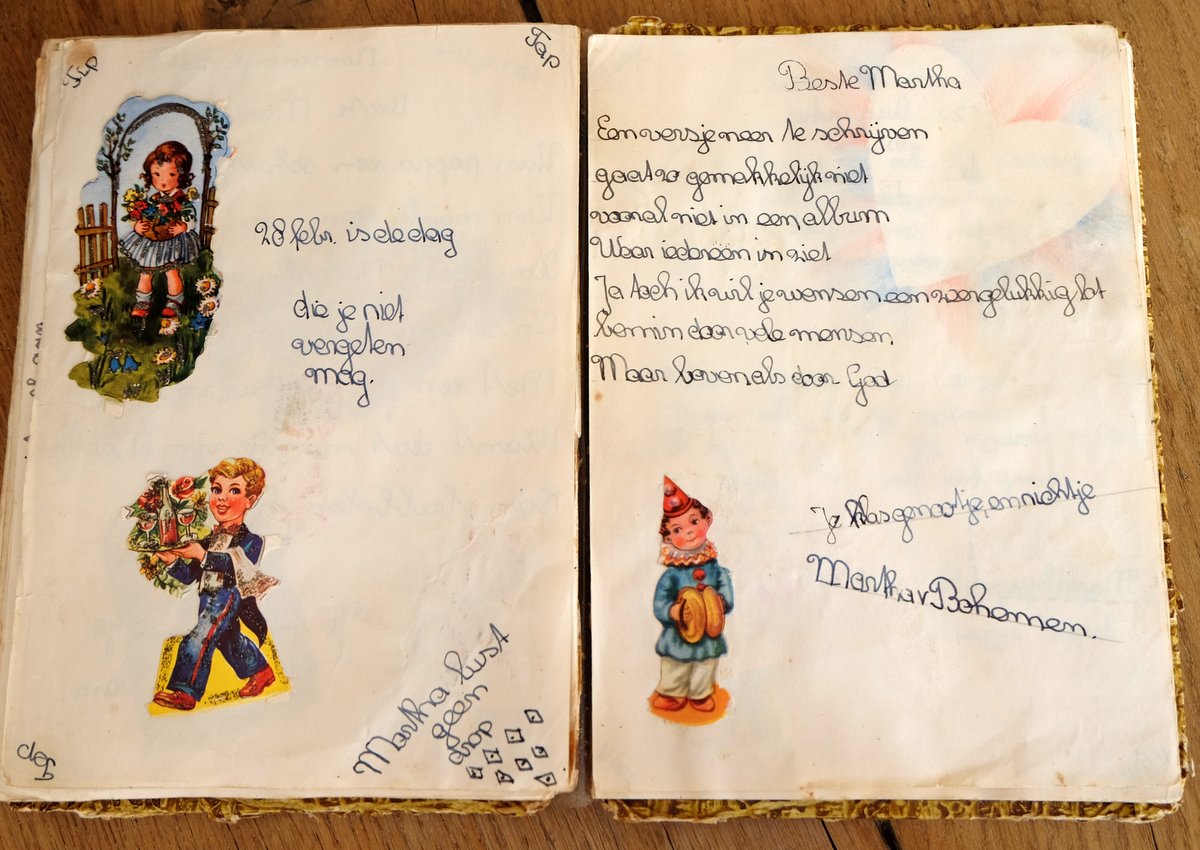 Tip
Tap
28 febr. is de dag
die je niet
vergeten
mag.
Martha lust
geen
drop
Top
Beste Martha
Een versje neer te schrijven
gaat zo gemakkelijk niet
vooral niet in een album
Waar iedereen in ziet
Ja toch ik wil je wensen een zeer gelukkig lot
bemin door vele mensen
Maar boven als door God
Je klasgenootje, en nichtje
Martha v Bohemen.